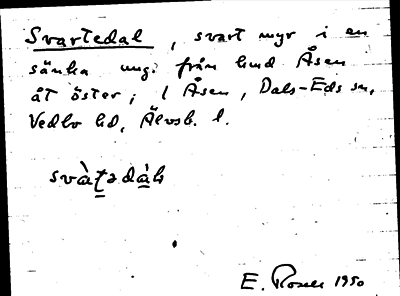 Svartedal, svart myr i en
sänka ung. från hmd Åsen
åt öster; i Åsen, Dals-Eds sn,
Vedbo hd, Älvsb. l.
svàt̲ədàh
E. 1950